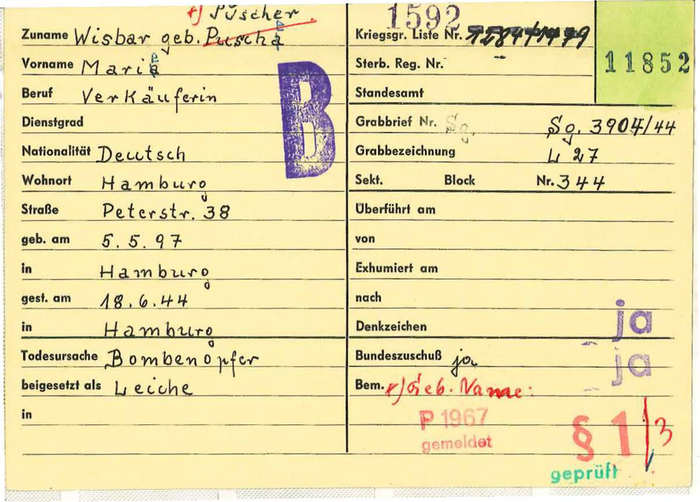 +) Püscher.
Zuname Wisbar geb. Puscha
Vorname Maria
Beruf Verkäuferin
Dienstgrad
Nationalität Deutsch
Wohnort Hamburg
Straße Peterstr. 38
geb. am 5.5.97
in Hamburg
gest. am 18.6.44
in Hamburg
Todesursache Bombenopfer
beigesetzt als Leiche
in
B
1592
Kriegsgr. Liste Nr.
11852
Sterb. Reg. Nr.
Standesamt
Grabbrief Nr. Sg. Sg. 3904/44
Grabbezeichnung L 27
Sekt. Block Nr. 344
Überführt am
von
Exhumiert am
nach
Denkzeichen ja
Bundeszuschuß ja ja
Bem. +) Geb. Name:
P 1967
gemeldet
§ 1/3
geprüft